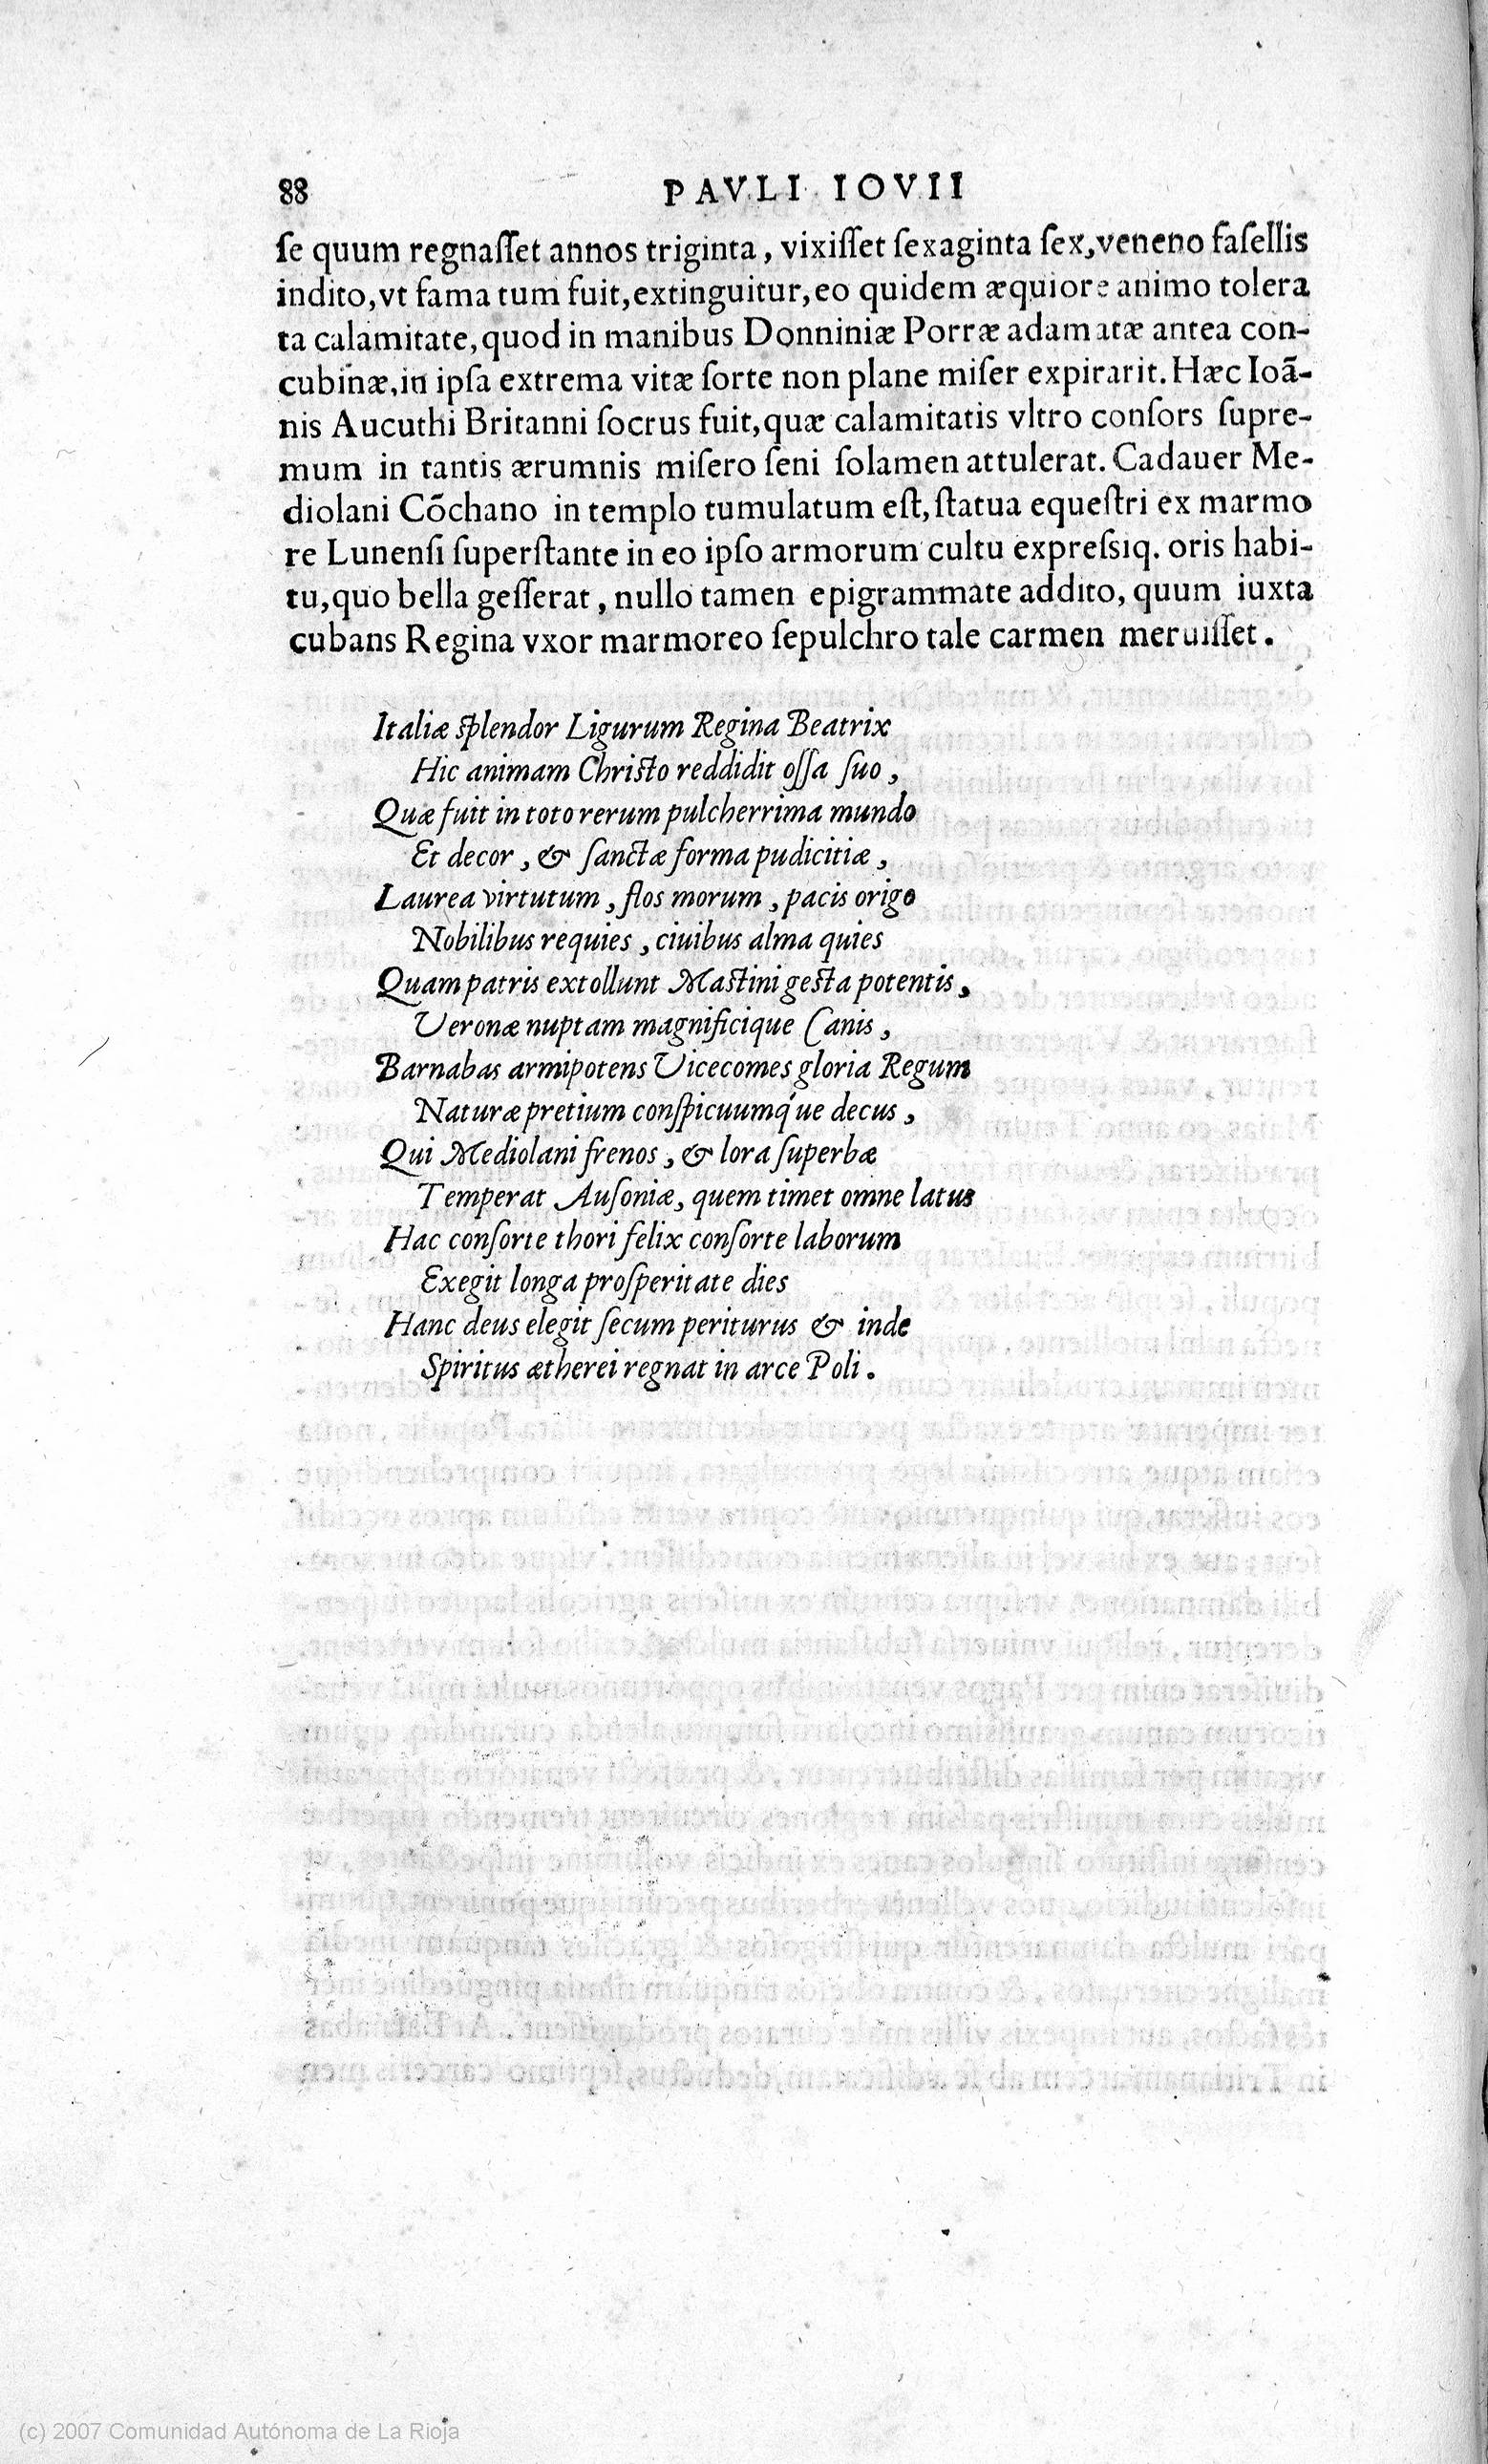 88 PAVLI IOVII
ſe quum regnaſſet annos triginta, vixiſſet ſexaginta ſex, veneno faſellis
indito, vt fama tum fuit, extinguitur, eo quidem æquiore animo tolera
ta calamitate, quod in manibus Donniniæ Porræ adamatæ antea con-
cubinæ, in ipſa extrema vitæ ſorte non plane miſer expirarit. Hæc Ioã-
nis Aucuthi Britanni ſocrus fuit, quæ calamitatis vltro conſors ſupre-
mum in tantis ærumnis miſero ſeni ſolamen attulerat. Cadauer Me-
diolani Cõchano in templo tumulatum eſt, ſtatua equeſtri ex marmo
re Lunenſi ſuperſtante in eo ipſo armorum cultu expreſsiq. oris habi-
tu, quo bella geſſerat, nullo tamen epigrammate addito, quum iuxta
cubans Regina vxor marmoreo ſepulchro tale carmen meruiſſet.
Italiæ ſplendor Ligurum Regina Beatrix
Hic animam Chriſto reddidit oſſa ſuo,
Quæ fuit in toto rerum pulcherrima mundo
Et decor, & ſanctæ forma pudicitiæ,
Laurea virtutum, flos morum, pacis origo
Nobilibus requies, ciuibus alma quies
Quam patris extollunt Maſtini geſta potentis,
Veronæ nuptam magnificique Canis,
Barnabas armipotens Vicecomes gloria Regum
Naturæ pretium conſpicuumq́ue decus,
Qui Mediolani frenos, & lora ſuperbæ
Temperat Auſoniæ, quem timet omne latus
Hac conſorte thori felix conſorte laborum
Exegit longa proſperitate dies
Hanc deus elegit ſecum periturus & inde
Spiritus ætherei regnat in arce Poli.
(c) 2007 Comunidad Autónoma de La Rioja